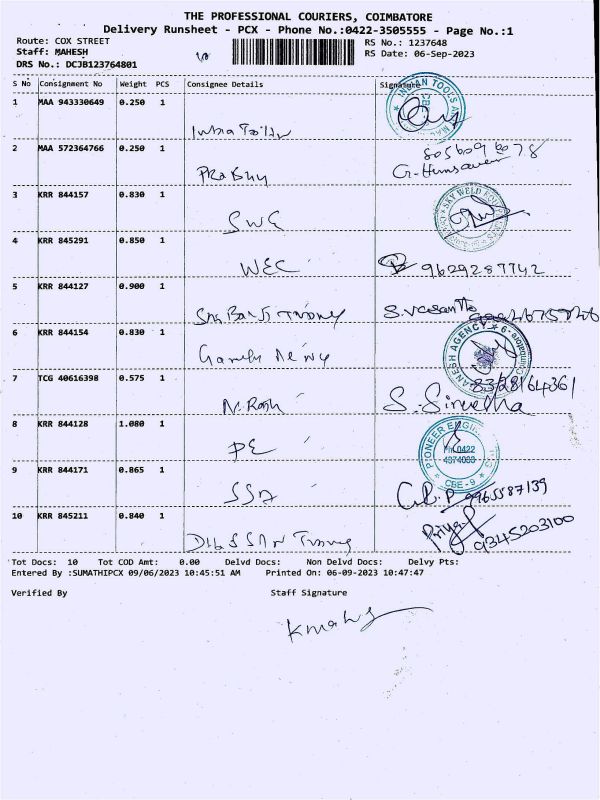 THE PROFESSIONAL COURIERS, COIMBATORE
Delivery Runsheet - PCX - Phone No.:0422-3505555 - Page No.:1
Route: COX STREET
Staff: MAHESH
DRS No.: DCJB123764801
RS No.: 1237648
RS Date: 06-Sep-2023
S No Consignment No Weight PCS Consignee Details Signature
1 MAA 943330649 0.250 1
INDIAN TOOLS AND
2 MAA 572364766 0.250 1
Prabhu
3 KRR 844157 0.830 1
SWE
SKY WELD
4 KRR 845291 0.850 1
WEC 9629287742
5 KRR 844127 0.900 1
S.Vasantha
6 KRR 844154 0.830 1
GANESH AGENCY Coimbatore-9
7 TCG 40616398 0.575 1
N. Rash
8 KRR 844128 1.080 1
PE
PIONEER ENGIN
Ph:0422
4374083
CBE - 9
9 KRR 844171 0.865 1
SSA 9965587139
10 KRR 845211 0.840 1
Priya 9345203100
Tot Docs: 10 Tot COD Amt: 0.00 Delvd Docs: Non Delvd Docs: Delvy Pts:
Entered By :SUMATHIPCX 09/06/2023 10:45:51 AM Printed On: 06-09-2023 10:47:47
Verified By Staff Signature